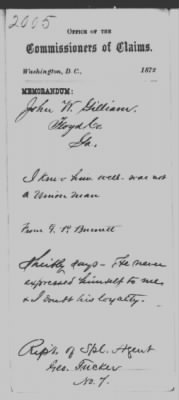 2005
OFFICE OF THE
Commissioners of Claims.
Washington, D.C., 1872
MEMORANDUM:
John W. Gilliam.
Floyd Co
Ga.
I know him well - was not
a Union man
From
Sheibly says - He never
expressed himself to me
& I doubt his loyalty.
Rept. of Spl. Agent
Geo. Tucker
No. 7.